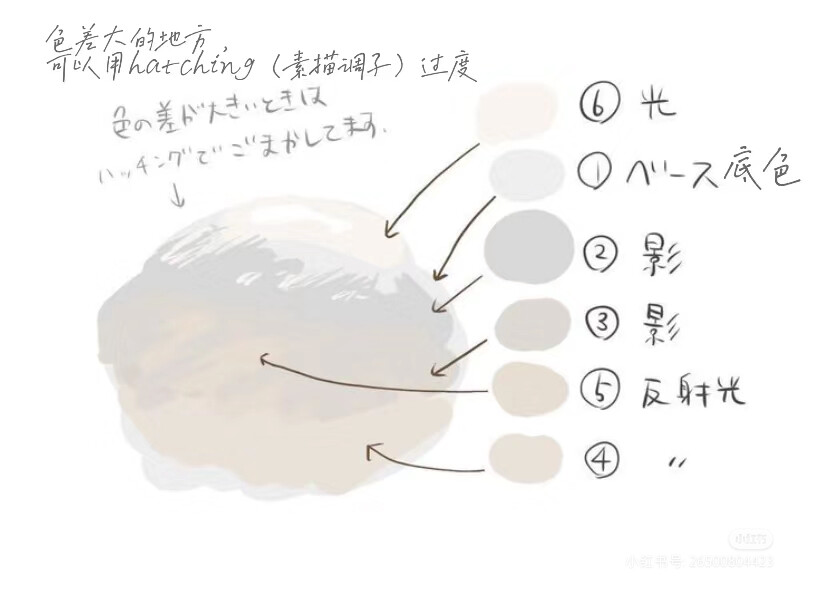 色差大的地方，
可以用hatching（素描调子）过度
色の差が大きいときは
ハッチングでごまかしてます．
⑥ 光
① ベース底色
② 影
③ 影
⑤ 反射光
④ 〃
小红书
小红书号: 26500804423